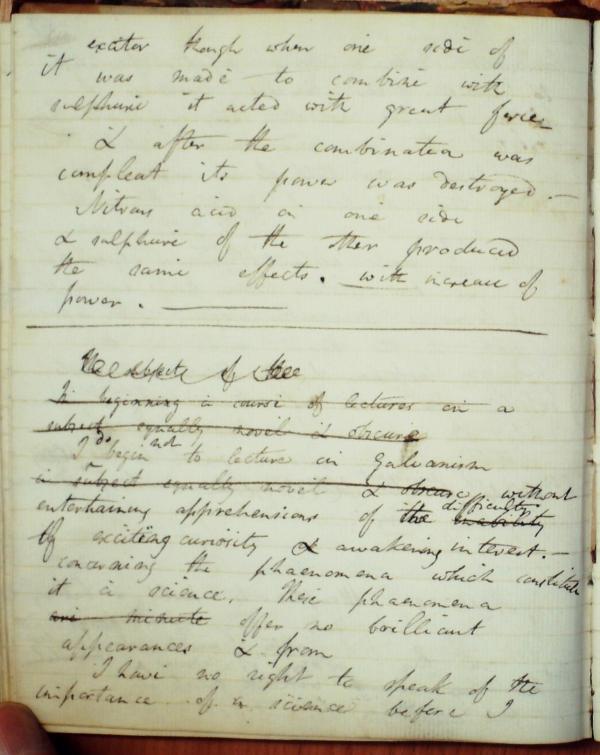 exciter though when one side of
it was made to combine with
sulphuric it acted with great force
& after the combination was
compleat its power was destroyed. —
Nitrous acid on one side
& sulphuric of the other produced
the same effects. with increase of
power. —
The objects of the
In beginning a course of lectures on a
subject equally novel & obscure
I do begin not to lecture on Galvanism
a subject equally novel & obscure without
entertaining apprehensions of the difficulty inability
of exciting curiosity & awakening interest. —
concerning the phaenomena which constitute
it a science. These phaenomena
are minute offer no brilliant
appearances & from
I have no right to speak of the
importance of a science before I